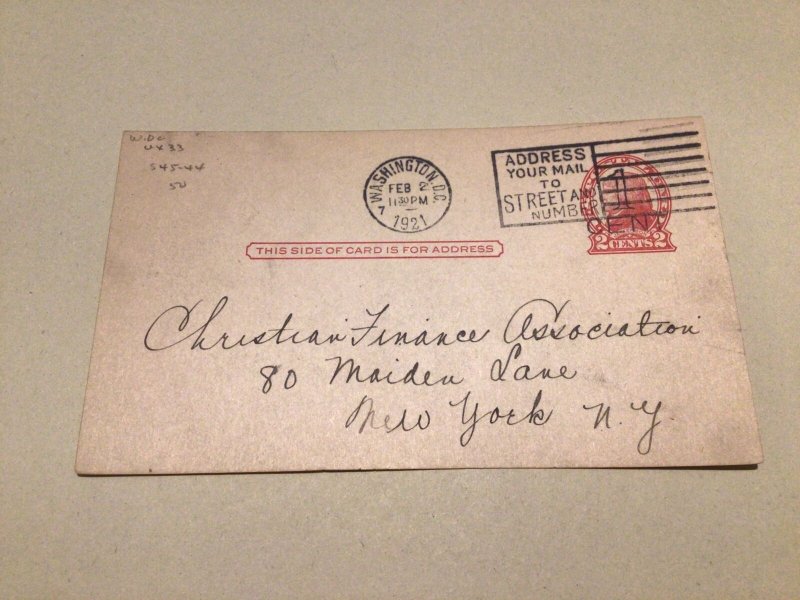 W.D.C.
UX 33
S45-44
50
WASHINGTON, D.C.
FEB 2
11 30 PM
7
1921
ADDRESS
YOUR MAIL
TO
STREET AND
NUMBER
1
CENT
2 CENTS 2
THIS SIDE OF CARD IS FOR ADDRESS
Christian Finance Association
80 Maiden Lane
New York N.Y.